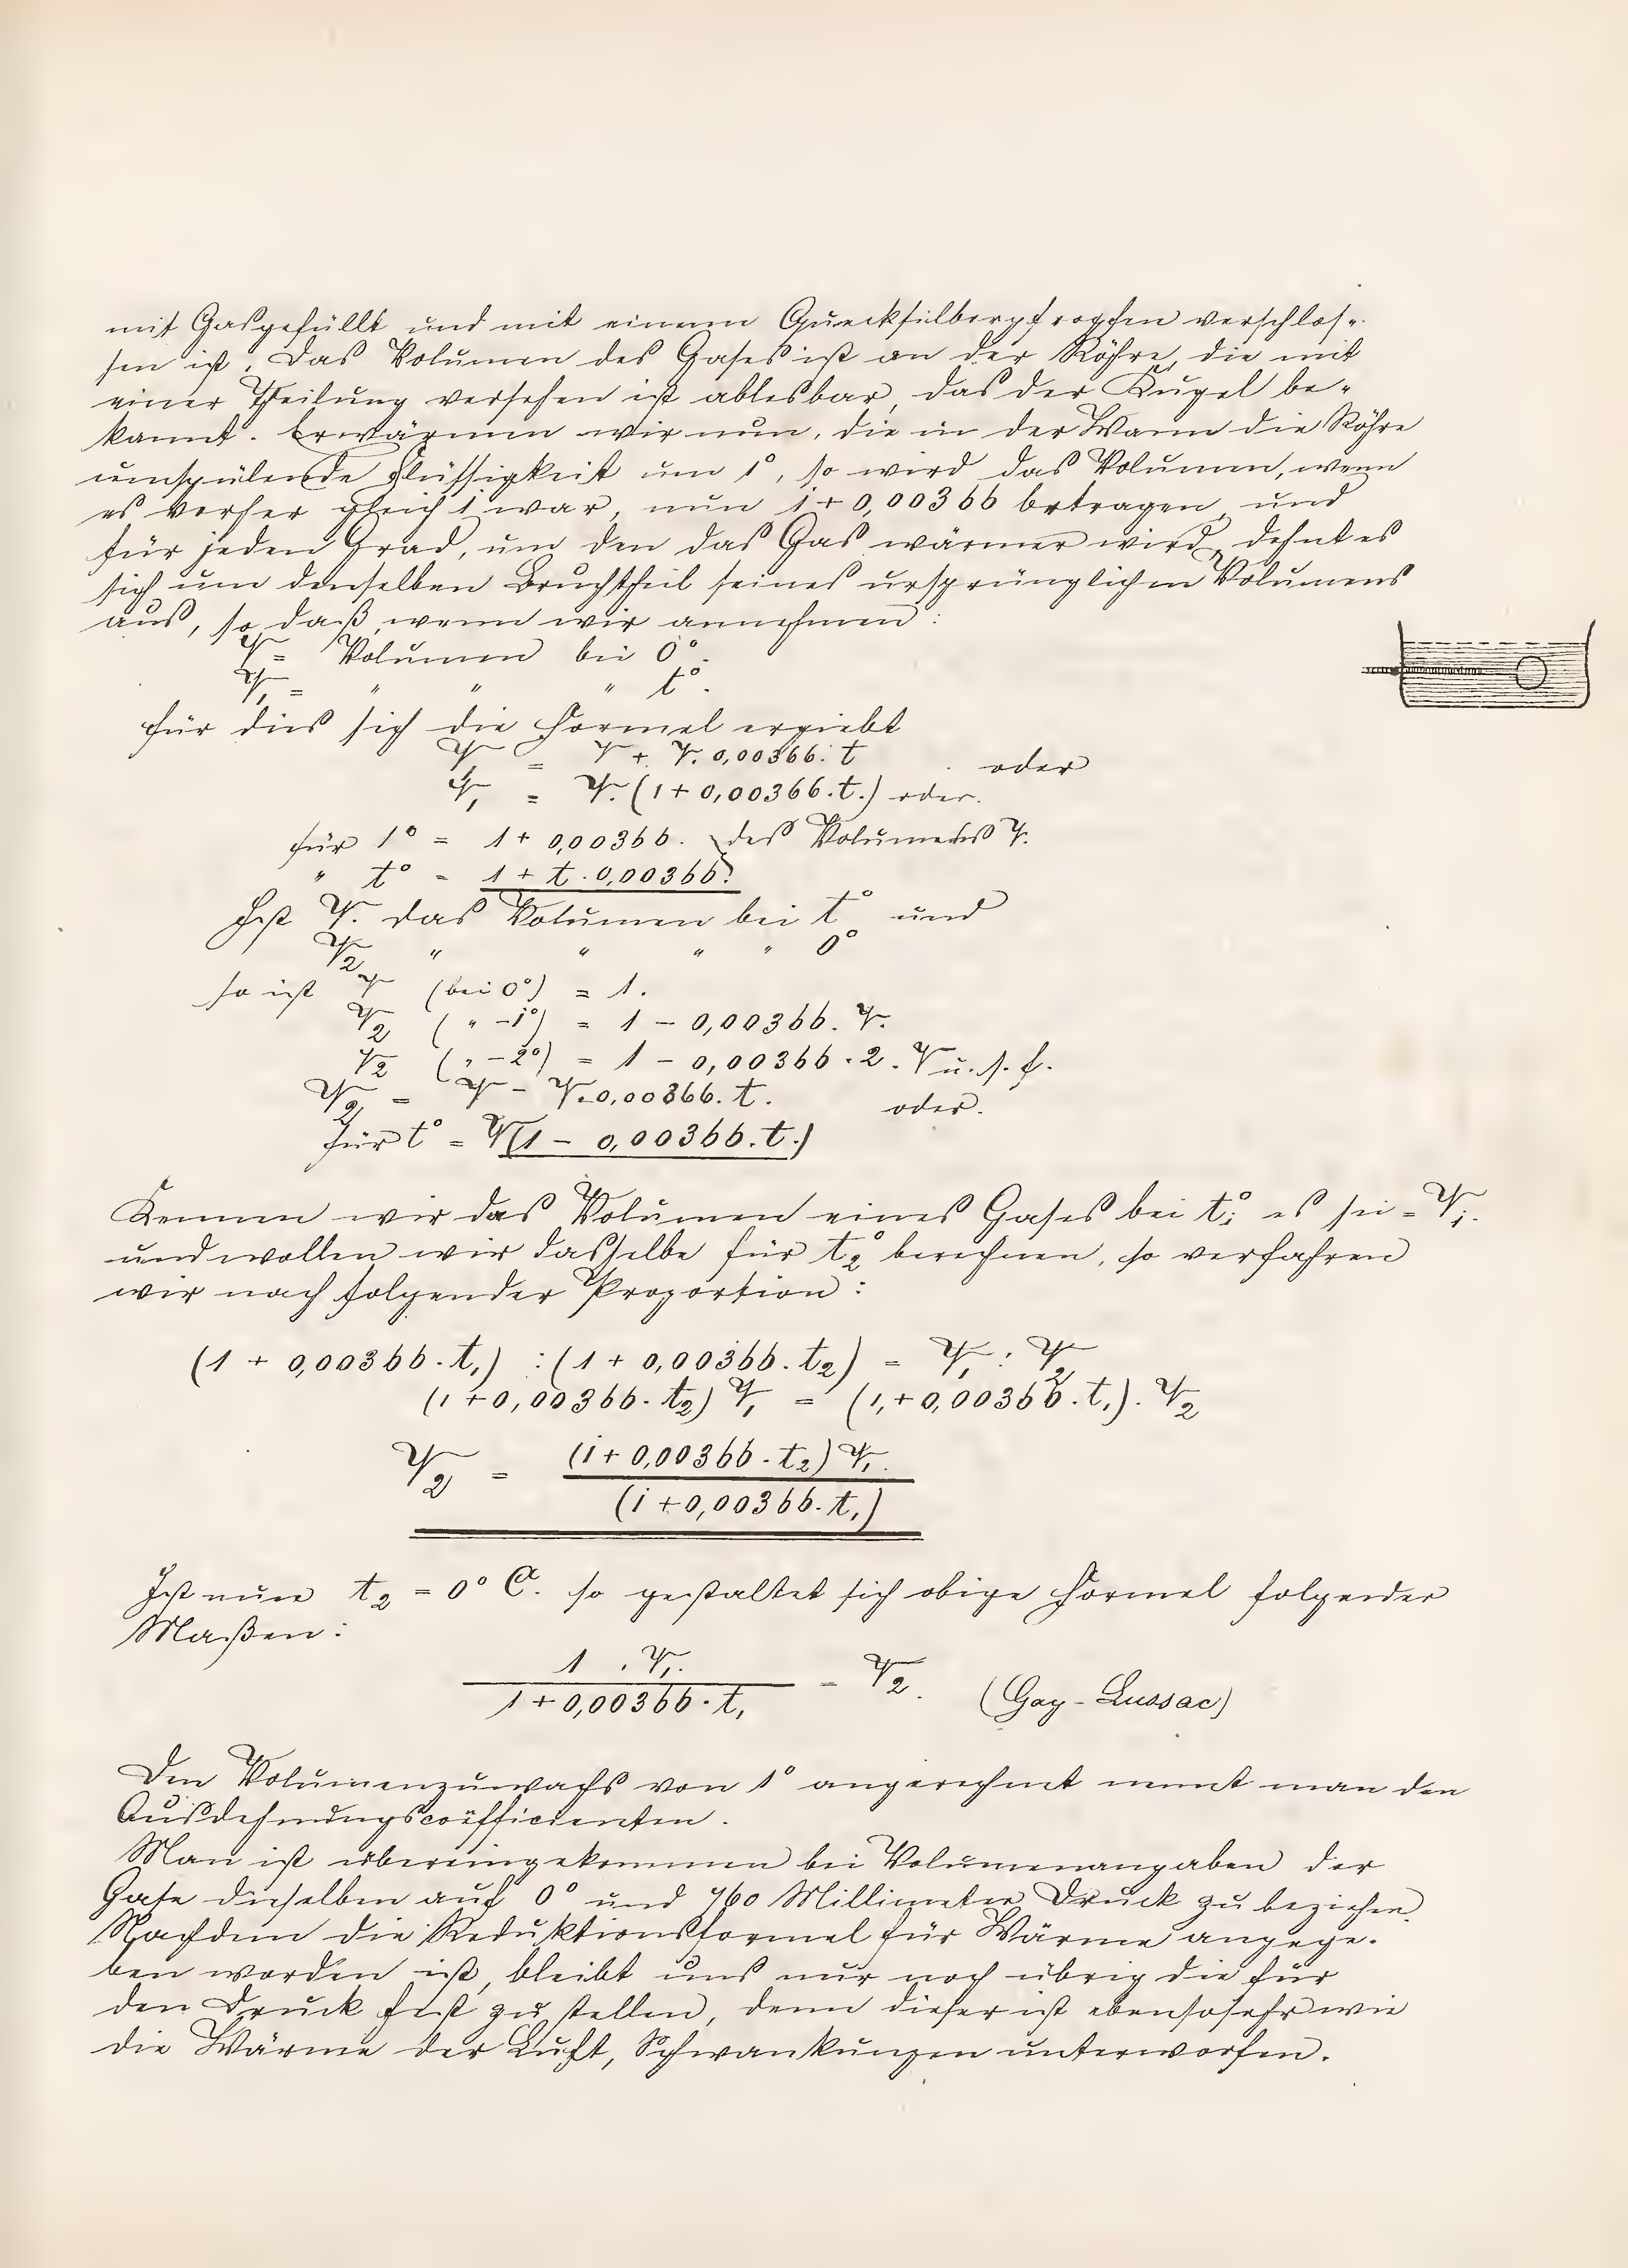 mit Gasgefüllt und mit einem Quecksilberpfropfen verschlos-
sen ist. Das Volumen des Gases ist an der Röhre, die mit
einer Theilung versehen ist ablesbar, das der Kugel be-
kannt. Erwärmen wir nun, die in der Wann die Röhre
umspülende Flüssigkeit um 1°, so wird das Volumen, wenn
es vorher gleich 1 war, nun 1 + 0,00366 betragen und
für jeden Grad, um den das Gas wärmer wird, dehnt es
sich um denselben Bruchtheil seines ursprünglichen Volumens
aus, so daß wenn wir annehmen:
V = Volumen bei 0°.
V₁ = " " " t°.
für dies sich die Formel ergiebt
V₁ = V + V. 0,00366. t oder
V₁ = V. (1 + 0,00366. t.) oder.
für 1° = 1 + 0,00366. des Volumens V.
" t° = 1 + t. 0,00366.
Ist V. das Volumen bei t° und
V₂ " " " " 0°
so ist V (bei 0°) = 1.
V₂ ( " -1°) = 1 - 0,00366. V.
V₂ ( " -2°) = 1 - 0,00366. 2. V u. s. f.
V₂ = V - V. 0,00366. t. oder.
für t° = V(1 - 0,00366. t.)
Kennen wir das Volumen eines Gases bei t₁° es sei = V₁.
und wollen wir dasselbe für t₂° berechnen, so verfahren
wir nach folgender Proportion:
(1 + 0,00366. t₁) : (1 + 0,00366. t₂) = V₁ : V₂
(1 + 0,00366. t₂) V₁ = (1, + 0,00366. t₁). V₂
V₂ = (1 + 0,00366. t₂) V₁.
(1 + 0,00366. t₁)
Ist nun t₂ = 0° C. so gestaltet sich obige Formel folgender
Maßen:
1 . V₁. = V₂. (Gay-Lussac)
1 + 0,00366. t₁
Den Volumenzuwachs von 1° angerechnet nennt man den
Ausdehnungscoëfficienten.
Man ist übereingekommen bei Volumenangaben der
Gase dieselben auf 0° und 760 Millimeter Druck zu beziehen.
Nachdem die Reduktionsformel für Wärme angege-
ben worden ist, bleibt uns nur noch übrig die für
den Druck fest zu stellen, denn dieser ist ebensosehr wie
die Wärme der Luft, Schwankungen unterworfen.